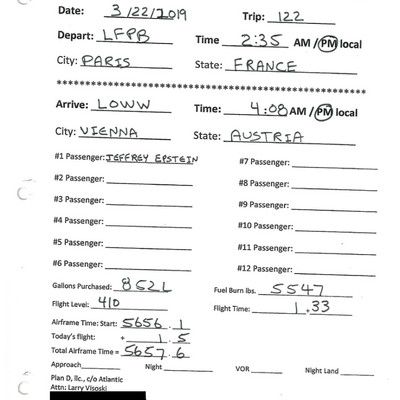 Date: 3/22/2019 Trip: 122
Depart: LFPB Time 2:35 AM / PM local
City: PARIS State: FRANCE
************************************************************
Arrive: LOWW Time: 4:08 AM / PM local
City: VIENNA State: AUSTRIA
#1 Passenger: JEFFREY EPSTEIN #7 Passenger:
#2 Passenger: #8 Passenger:
#3 Passenger: #9 Passenger:
#4 Passenger: #10 Passenger:
#5 Passenger: #11 Passenger:
#6 Passenger: #12 Passenger:
Gallons Purchased: 852L Fuel Burn lbs. 5547
Flight Level: 410 Flight Time: 1.33
Airframe Time: Start: 5656.1
Today's flight: + 1.5
Total Airframe Time = 5657.6
Approach Night VOR Night Land
Plan D, llc., c/o Atlantic
Attn: Larry Visoski